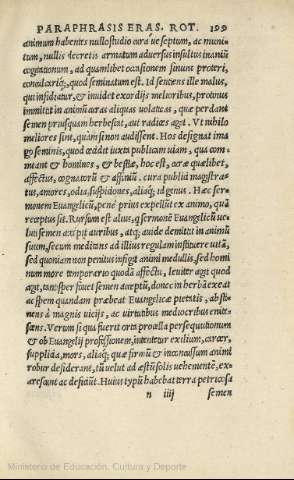 PARAPHRASIS ERAS. ROT. 199
animum habentes nullo studio curáue septum, ac muni
tum, nullis decretis armatum aduersus insultus inaniũ
cogitationum, ad quamlibet occasionem sinunt proteri,
conculcariq́;, quod seminatum est. Id sentiens ille malus,
qui insidiatur, & inuidet exordijs melioribus, protinus
immittit in animũ curas aliquas uolaticas, quæ perdant
semen priusquam herbescat, aut radices agat. Vt nihilo
meliores sint, quàm si non audissent. Hos designat ima
go seminis, quod cecidit iuxta publicam uiam, qua com
meant & homines, & bestiæ, hoc est, curæ quælibes,
affectus, cognatorũ & affiniũ. cura publici magistra=
tus, amores, odia, suspiciones, aliaq́; id genus. Hæc ser=
monem Euangelicũ, penè prius expellũt ex animo, quã
receptus sit. Rursum est alius, q sermonẽ Euangelicũ ue
lut semen excipit auribus, atq; auide demittit in animũ
suum, secum meditans ad illius regulam instituere uitã,
sed quoniam non penitus infigit animi medullis, sed homi
num more temporario quodã affectu, leuiter agit quod
agit, tantisper fouet semen acceptũ, donec in herbã exeat
ac spem quandam præbeat Euangelicæ pietatis, absti=
nens à magnis uicijs, ac uirtutibus mediocribus enite=
scens. Verum si qua fuerit orta procella persequutionum
& ob Euangelij professionem, intentetur exilium, carcer,
supplicia, mors, aliaq́; quæ firmũ & inconcussum animi
robur desiderant, tũ uelut ad æstũ solis uehementẽ, ex=
arescunt ac deficiũt. Huius typũ habebat terra petricosa
n iiij semen
Ministerio de Educación, Cultura y Deporte